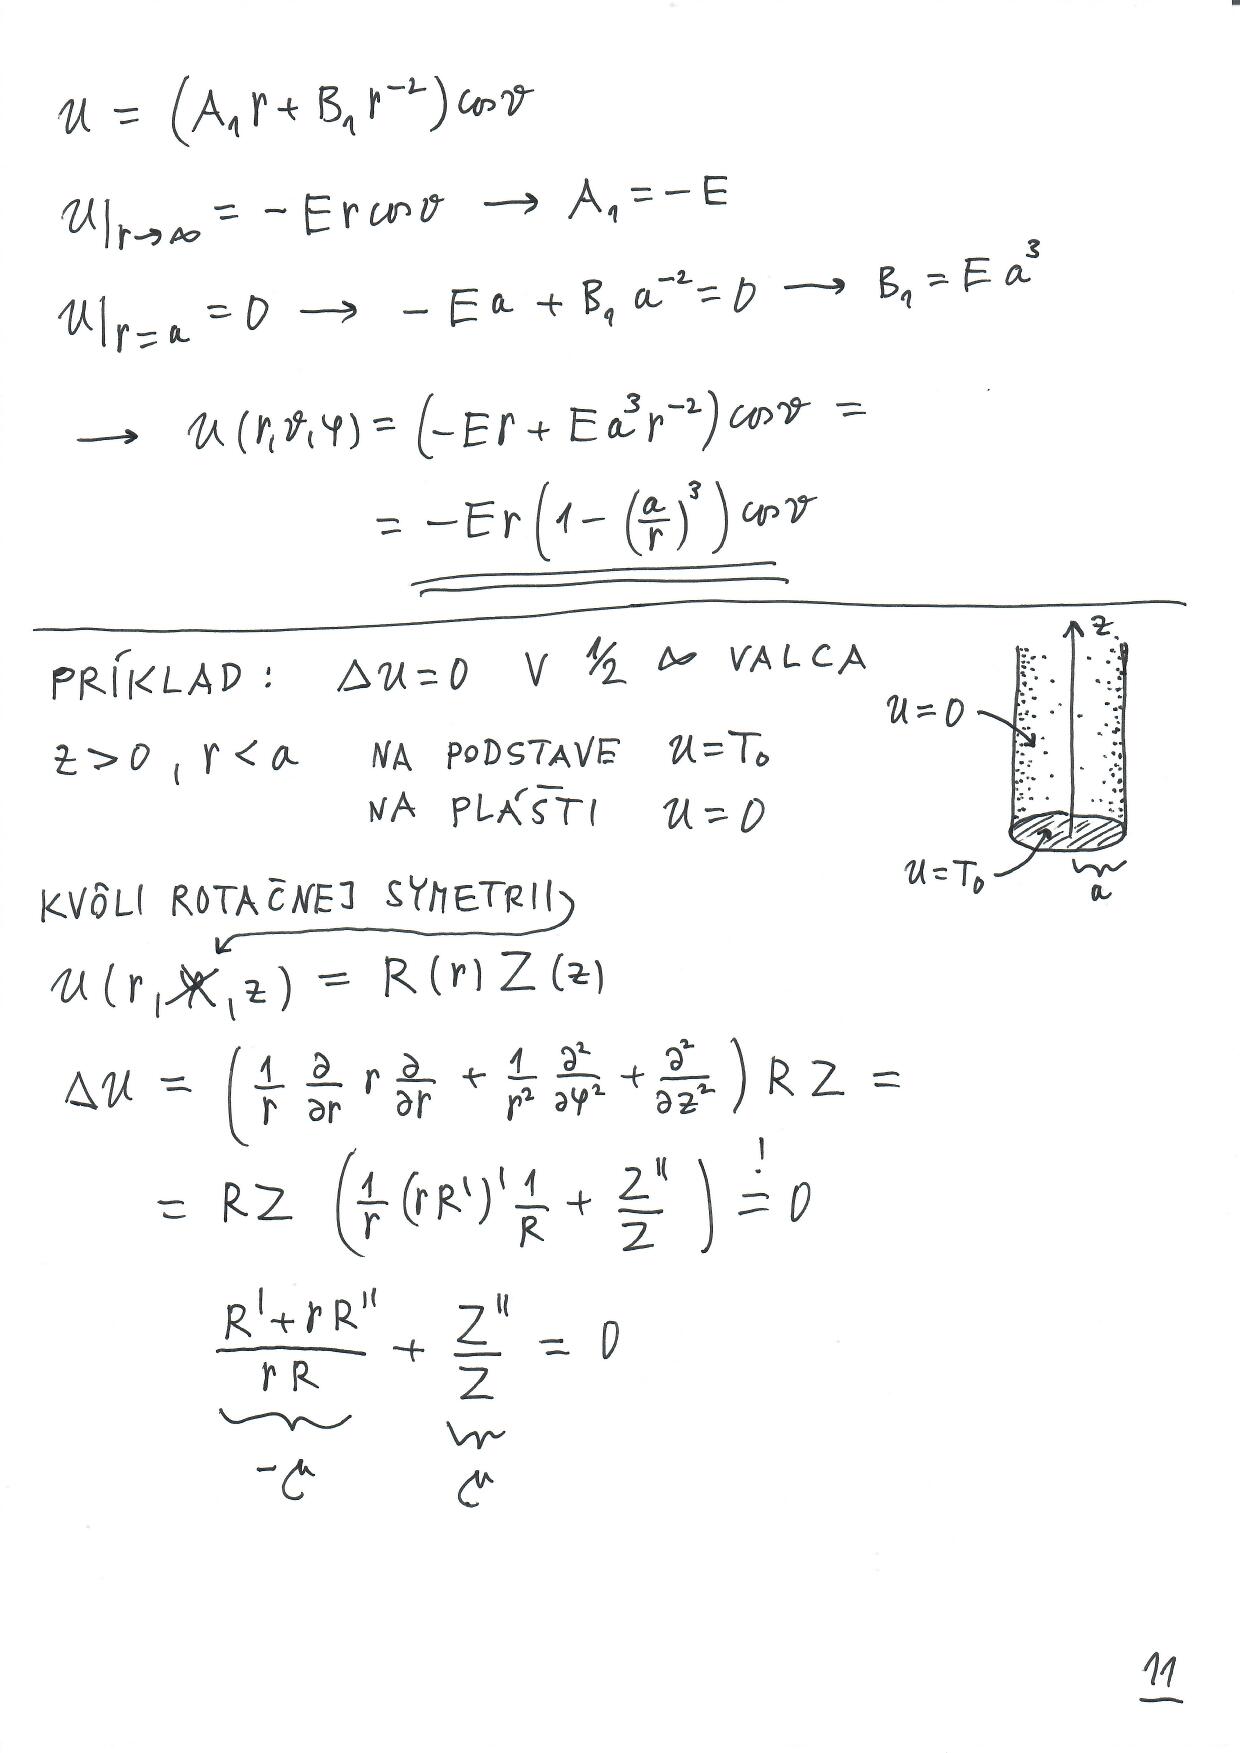 u = (A₁r + B₁r⁻²) cosϑ
u|r→∞ = - E r cosϑ → A₁ = - E
u|r=a = 0 → - E a + B₁ a⁻² = 0 → B₁ = E a³
→ u(r,ϑ,φ) = (-Er + E a³ r⁻²) cosϑ =
= -Er (1 - (a/r)³) cosϑ
PRÍKLAD : Δu = 0 V 1/2 ∞ VALCA
z > 0 , r < a NA PODSTAVE u = T₀
NA PLÁŠTI u = 0
z
u = 0
u = T₀
a
KVÔLI ROTAČNEJ SYMETRII
u(r, φ, z) = R(r) Z(z)
Δu = (1/r ∂/∂r r ∂/∂r + 1/r² ∂²/∂φ² + ∂²/∂z²) R Z =
= RZ (1/r (rR')' 1/R + Z''/Z) =! 0
(R' + rR'')/(rR) + Z''/Z = 0
-μ μ
11